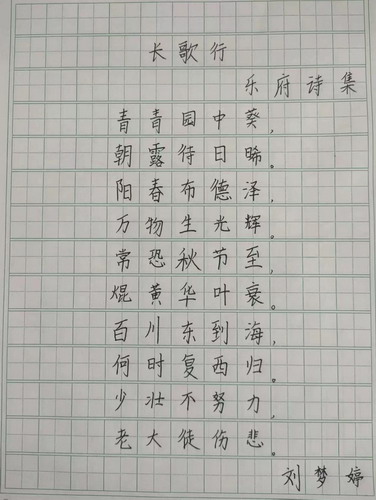 长歌行
乐府诗集
青青园中葵,
朝露待日晞。
阳春布德泽,
万物生光辉。
常恐秋节至,
焜黄华叶衰。
百川东到海,
何时复西归。
少壮不努力,
老大徒伤悲。
刘梦婷